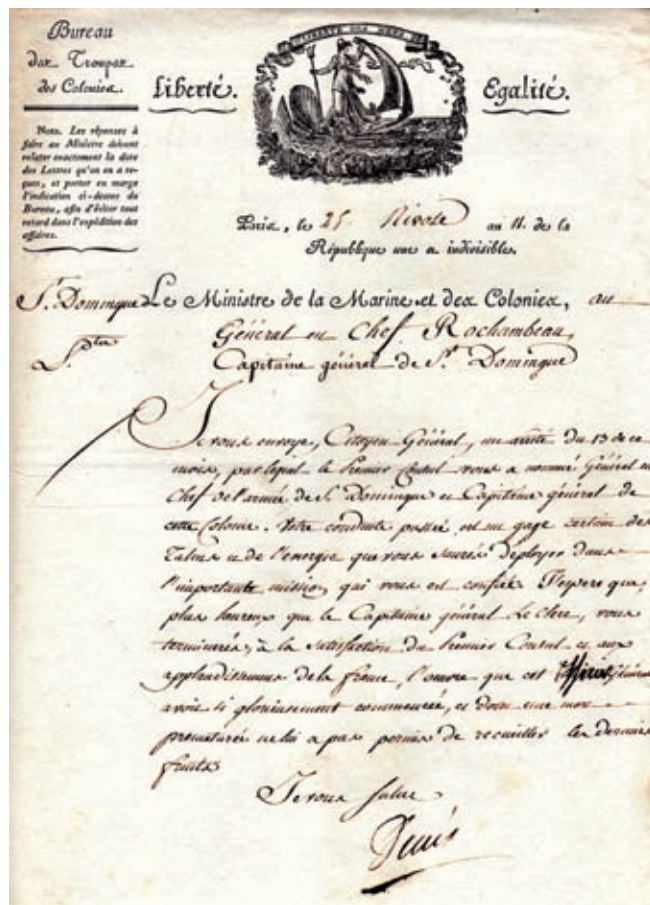 Bureau
des Troupes
des Colonies.
Nota. Les réponses à
faire au Ministre doivent
relater exactement la date
des Lettres qu'on en a re-
çues, et porter en marge
l'indication ci-dessus du
Bureau, afin d'éviter tout
retard dans l'expédition des
affaires.
LIBERTÉ DES MERS
Liberté.
Egalité.
Paris, le 25 Nivose an 11. de la
République une et indivisible.
St. Domingue
Le Ministre de la Marine et des Colonies, au
Général en Chef Rochambeau,
Capitaine général de St. Domingue
Je vous envoye, Citoyen Général, un arrêté du 13 de ce
mois, par lequel le Premier Consul vous a nommé Général en
Chef de l'armée de St. Domingue et Capitaine général de
cette Colonie. Votre conduite passée est un gage certain des
Talens et de l'énergie que vous saurés déployer dans
l'importante mission qui vous est confiée. J'espere que,
plus heureux que le Capitaine général Le Clerc, vous
terminerés, à la satisfaction du Premier Consul et aux
applaudissemens de la france, l'œuvre que cet Officier Général
avoit si glorieusement commencée, et dont une mort
prematurée ne lui a pas permis de recueillir les derniers
fruits.
Je vous salue